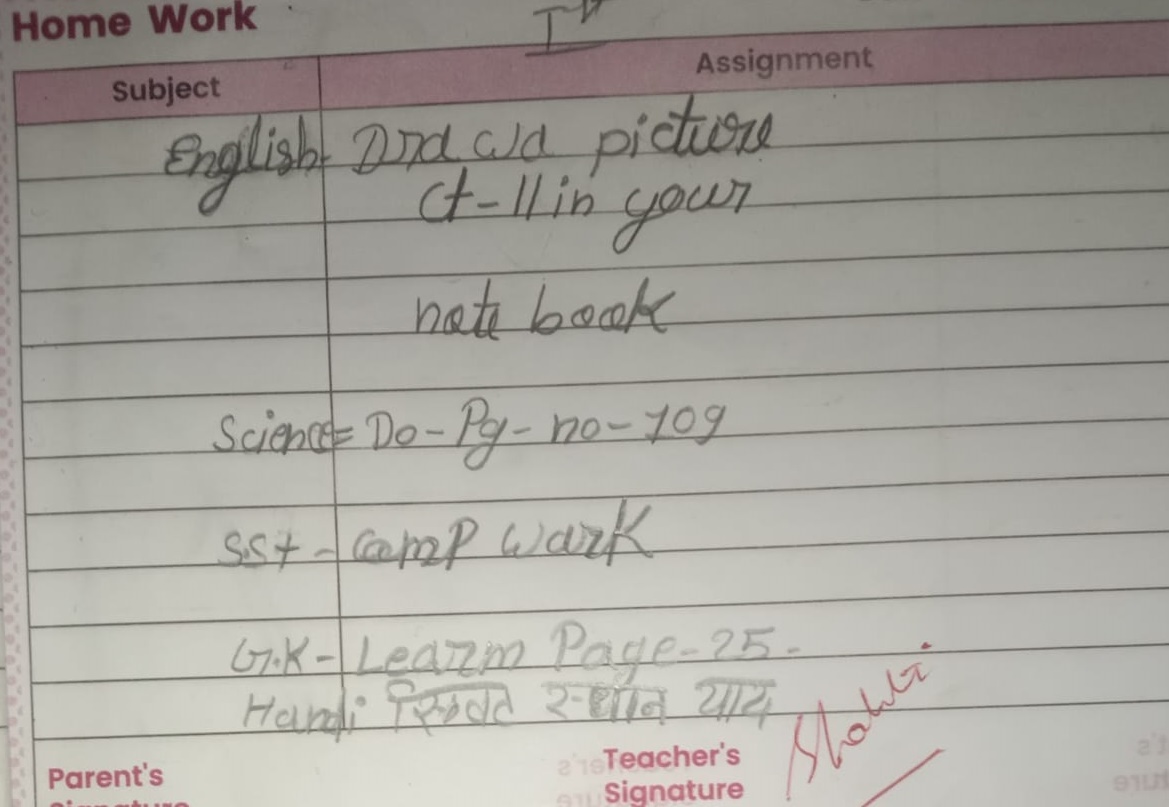 Home Work
Subject Assignment
English picture
in your
note book
Science= Do-Pg-no-109
S.St - Comp Work
G.K- Learm Page-25-
Handi रिक्त स्थान याद
Parent's Teacher's
Signature Signature